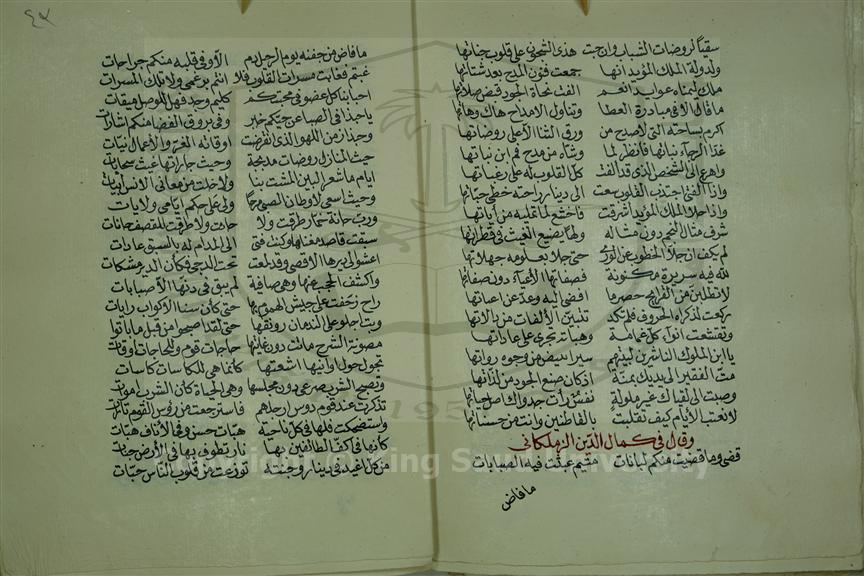 سقيًا لروضات الشباب وان جنت هذى الشجون على قلوب جناتها
ولدولة الملك المؤيد انها جمعت فنون المدح بعد شتاتها
ملك ليمناه عوايد انعم الفت نحاة الجود فيض صلاتها
ما قال لا في مبادرة العطا وتناول الامداح هاك وهاتها
اكرم بساحته التي لا صدح من ورق الثنا الا على روضاتها
غذا الرجا نباتها فانظر لما وشاه من مدح فم ابن نباتها
واهرع الى الشخص الذى قد الفت كل القلوب له على رغباتها
واذا الفتى اجتذب القلوب سعت الى دينار راحته خطى حباتها
واذا جلا الملك المؤيد اشرقت فاخشع لما تمليه من اياتها
شرف مثال النجم دون مثاله ولها يضيع الغيث في قطراتها
لم يكف ان جلا الخطوب عن الورى حتى جلا بعلومه جهلاتها
لله فيه سريرة مكنونة فصفاتها الاعباء دون صفاتها
لا تطلبن من القرايح حصر ما افضى اليه وعد عن اعناتها
ركعت لذكراه الحروف فلم تكد تبين الالفات من دالاتها
وتقشعت انواء كل غمامة وهباته تجرى على عاداتها
يا ابن الملوك الناشرين لبيتهم سيرا تبيض من وجوه رواتها
مت الفقير الى يديك بمنة اذ كان صنع الجود من لذاتها
وصبت الى لقياك غير ملولة
لا تعتب الايام كيف تقلبت بالقاطنين وانت من حسناتها
وقال في كمال الدين الزملكاني
قضى وما قضيت منكم لبانات متيم عبثت فيه الصبابات
ما فاض
٤٢
ما فاض من جفنه يوم الرحيل دم الا وفي قلبه منكم جراحات
غبتم فغابت مسرات القلوب فلا انتم برغمى ولا تلك المسرات
احبابنا كل عضو في محبتكم كليم وجد فهل للوصل ميقات
يا حبذا في الصبا عن حيكم خبر وفي بروق الغضا منكم اشارات
وحبذا زمن اللهو الذى انقرضت اوقاته الغر والاعمال نيات
حيث المنازل روضات مدبجة وحيث جاراتها غيد سحابات
ايام ما شعر البين المشت بنا ولا خلت من معانى الانس ابيات
وحيث اسعى لاوطان الصبى مرحا ولى على حكم ايامى ولايات
ورب حانة خمار طرقت ولا حانت ولا طرقت للقصف حانات
سبقت قاصد مغناها وكنت فتى الى المدام له بالسبق عادات
اعشو الى ديرها الاقصى وقد لمعت تحت الدجى فكان الدير مشكاة
واكشف الحجب عنها وهى صافية لم يبق في دنها الا صبابات
راح زحفت على جيش الهموم بها حتى كأن سنا الاكواب رايات
وبت اجلو على الندمان رونقها حتى لقد اصبحوا من قبل ما باتوا
مصونة السرح ماتت دون غايتها حاجات قوم وللحاجات اوقات
تجول حول اوانيها اشعتها كانما هى للكاسات كاسات
وتصبح الشرب صرعى دون مجلسها وهى الحياة كان الشرب اموات
تذكرت عند قوم دوس ارجلهم فاسترجعت من رؤس القوم ثارات
واستضحكت فلها في كل ناحية هبات حسن وفي الاناف هبات
كانها في اكف الطائفين بها نار تطوف بها في الارض جنات
من كل اغيد في دينار وجنته توزعت من قلوب الناس حبات